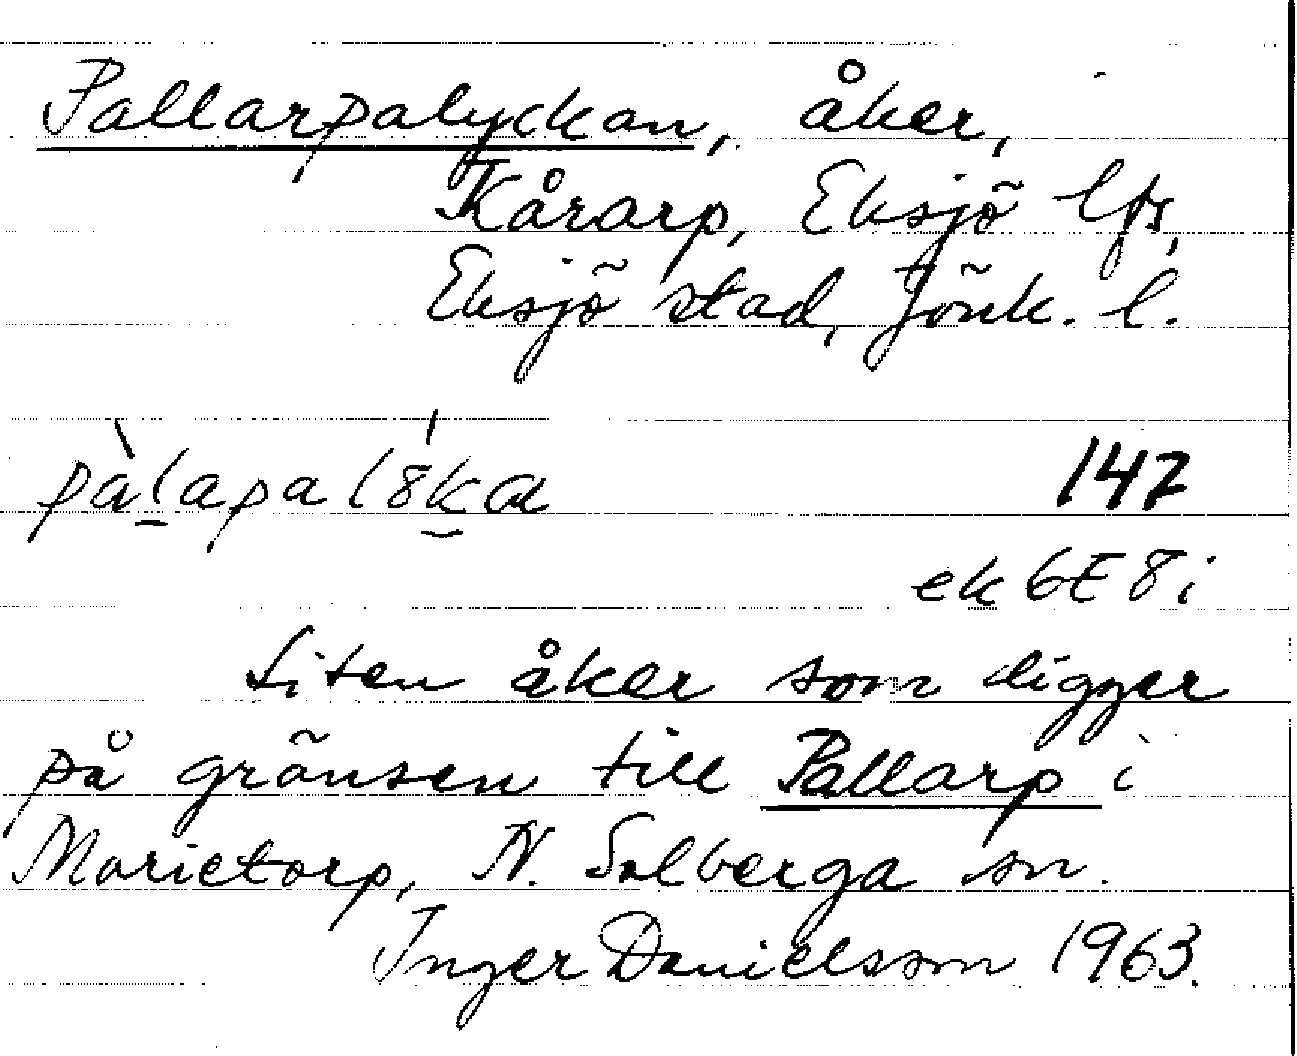 Pallarpalyckan, åker,
Kårarp, Eksjö lfs,
Eksjö stad, Jönk. l.
pàlapal8ka 147
ek 6E8i
Liten åker som ligger
på gränsen till Pallarp i
Marietorp, N. Solberga sn.
Inger Danielsson 1963.